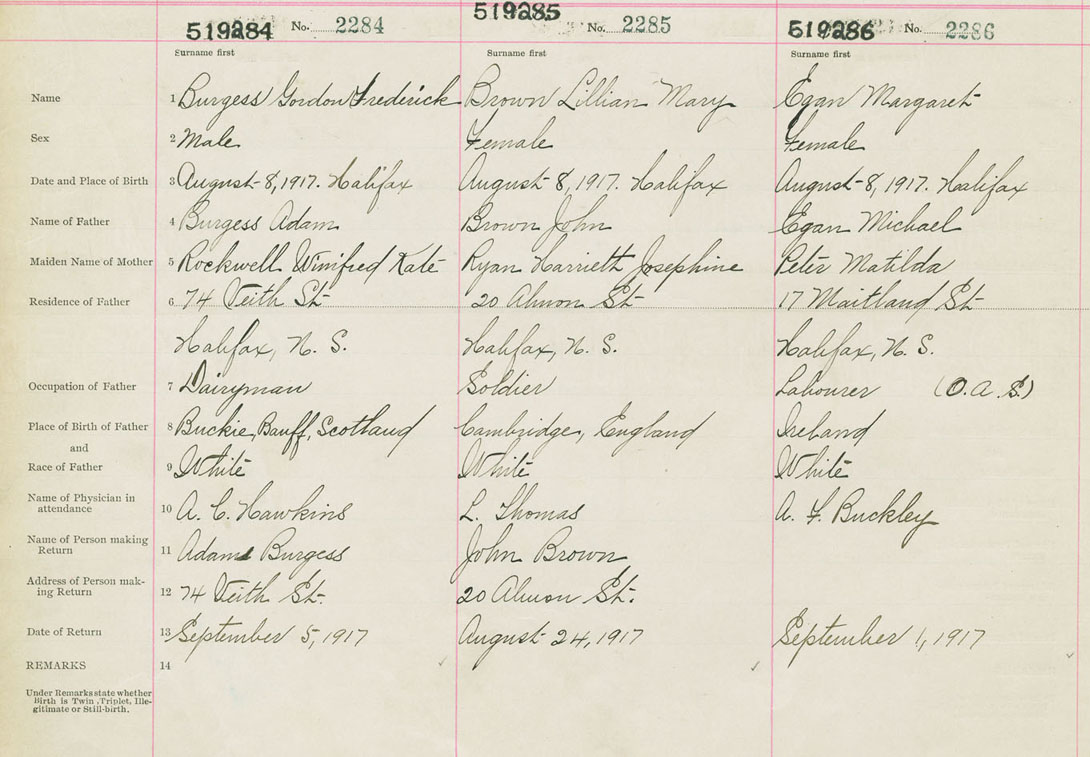 519284 No. 2284 519285 No. 2285 519286 No. 2286
Surname first Surname first Surname first
Name 1 Burgess Gordon Frederick Brown Lillian Mary Egan Margaret
Sex 2 Male Female Female
Date and Place of Birth 3 August 8, 1917. Halifax August 8, 1917. Halifax August 8, 1917. Halifax
Name of Father 4 Burgess Adam Brown John Egan Michael
Maiden Name of Mother 5 Rockwell Winifred Kate Ryan Harriett Josephine Peter Matilda
Residence of Father 6 74 Veith St 20 Almon St 17 Maitland St
Halifax, N. S. Halifax, N. S. Halifax, N. S.
Occupation of Father 7 Dairyman Soldier Labourer (O. A. S.)
Place of Birth of Father 8 Buckie, Banff, Scotland Cambridge, England Ireland
and
Race of Father 9 White White White
Name of Physician in
attendance 10 A. C. Hawkins L. Thomas A. F. Buckley
Name of Person making
Return 11 Adam Burgess John Brown
Address of Person mak-
ing Return 12 74 Veith St. 20 Almon St.
Date of Return 13 September 5, 1917 August 24, 1917 September 1, 1917
REMARKS 14
Under Remarks state whether
Birth is Twin, Triplet, Ille-
gitimate or Still-birth.